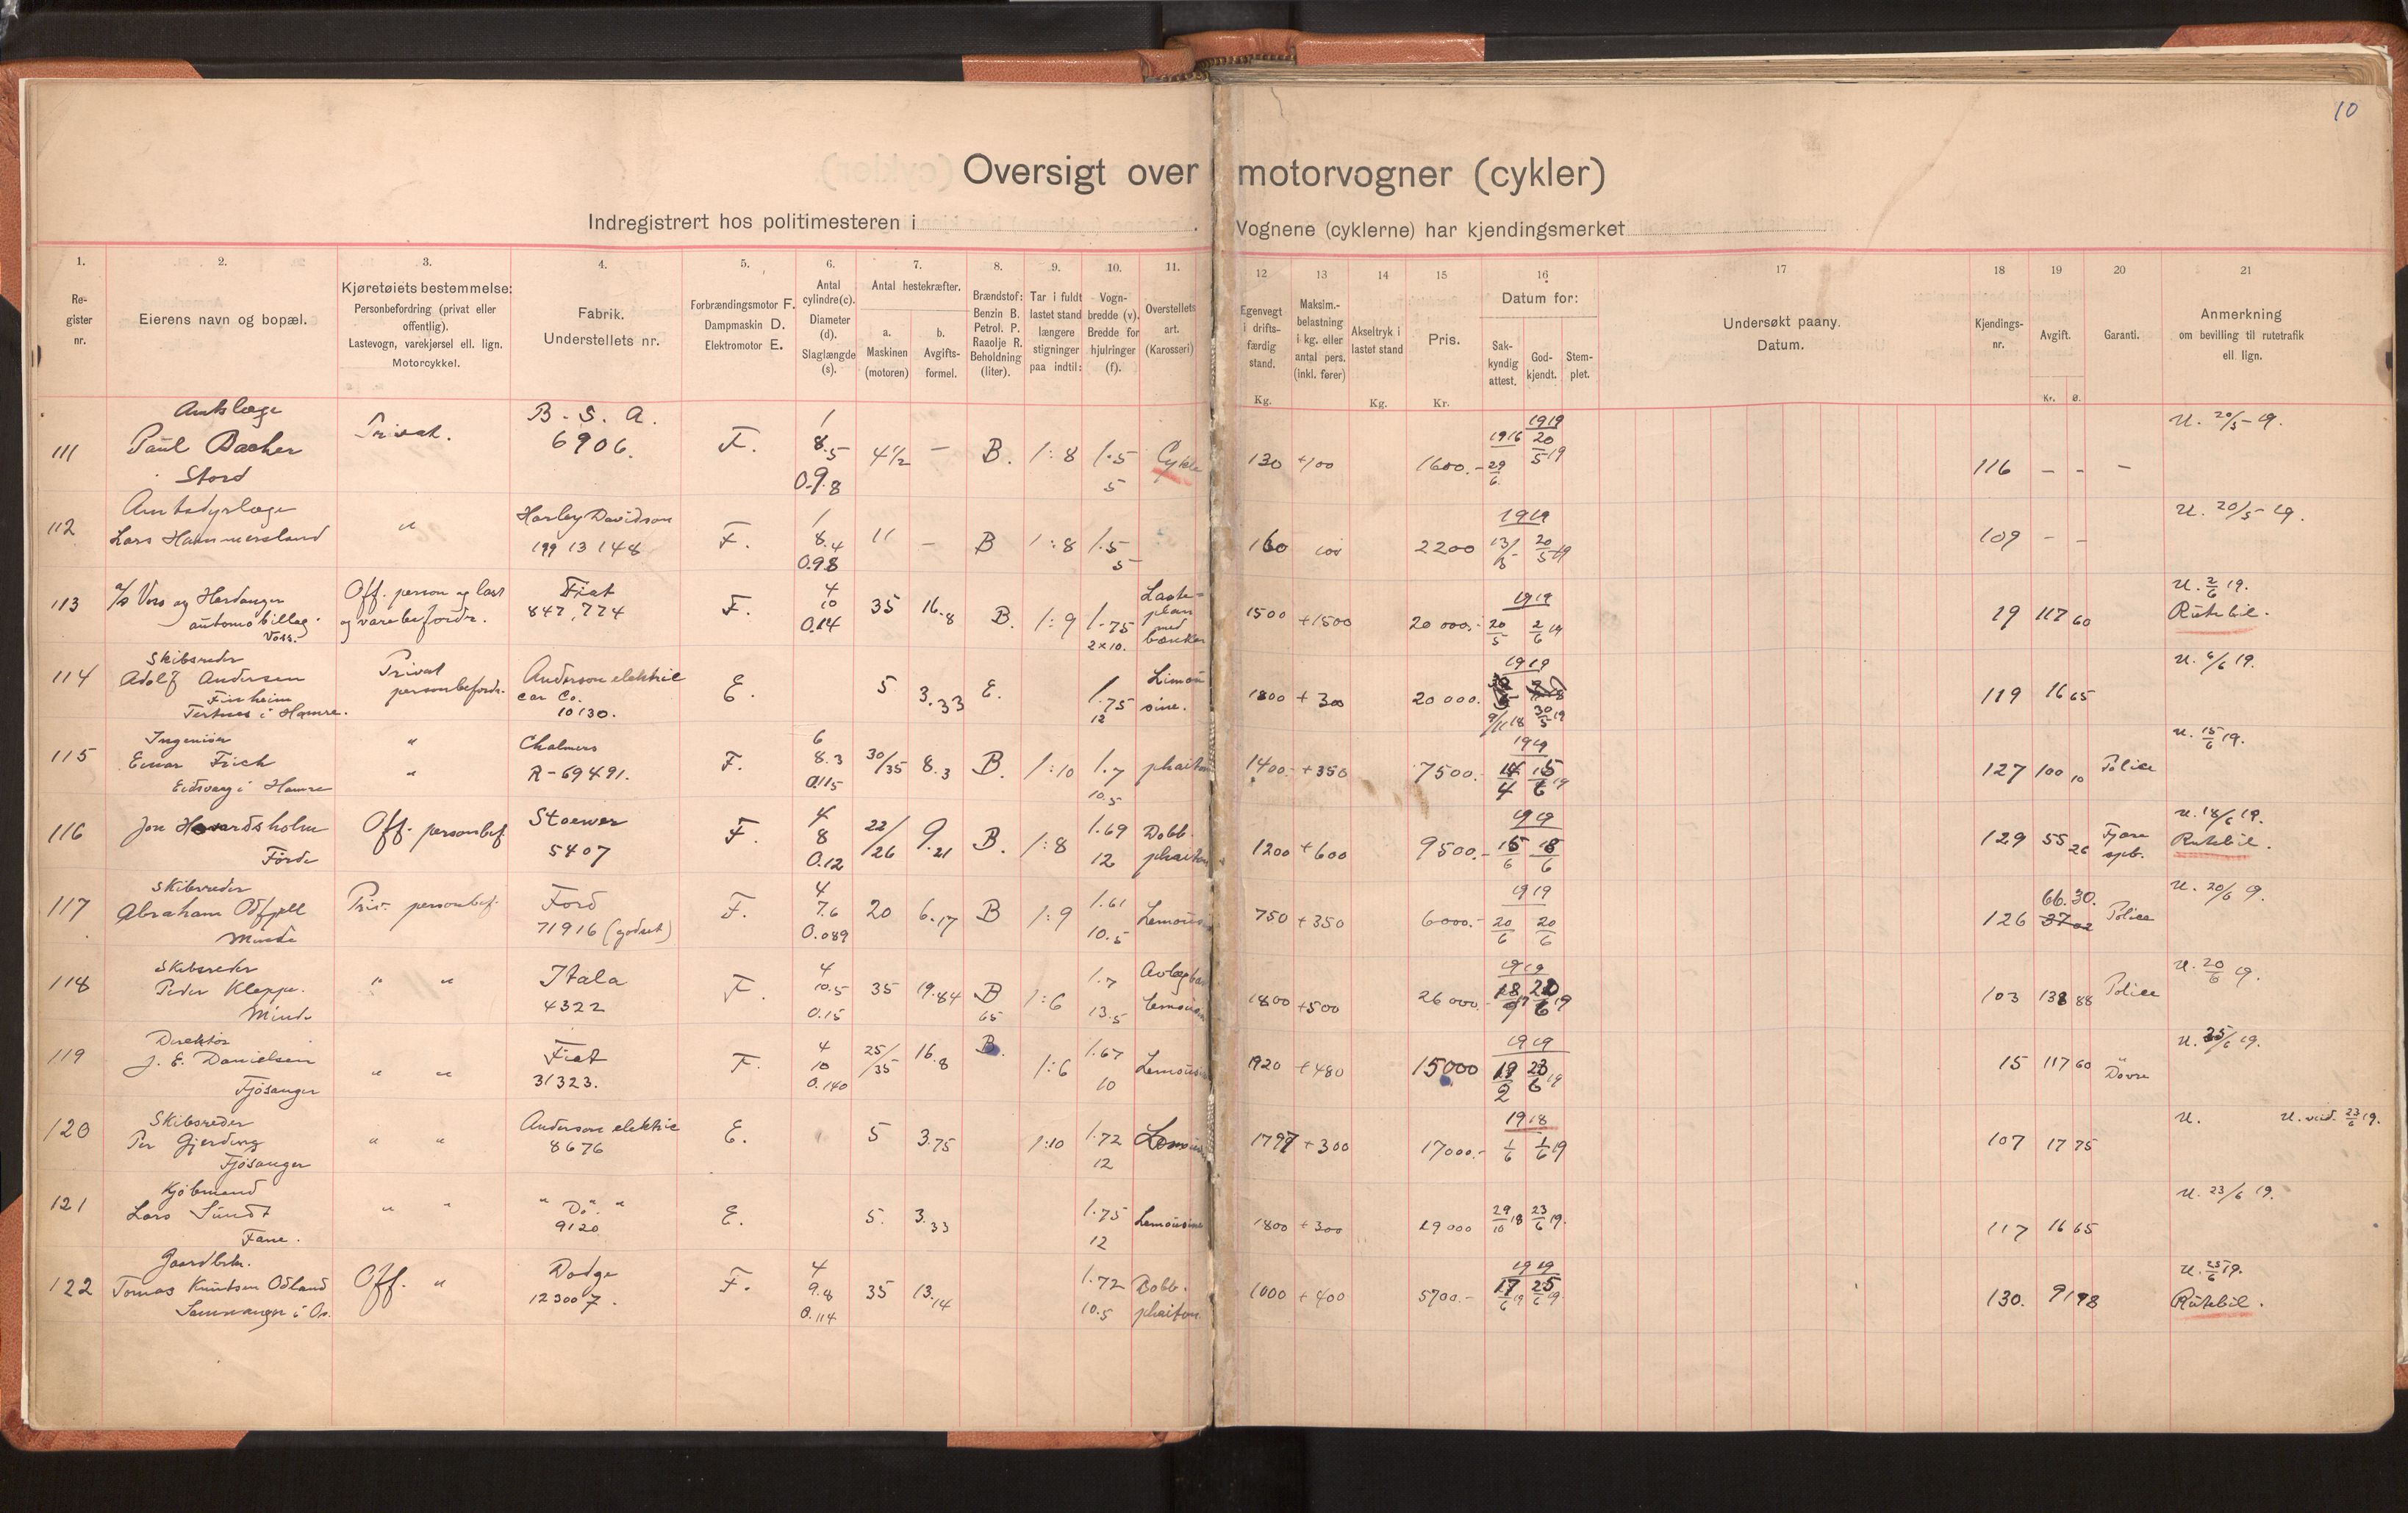 10
Oversigt over motorvogner (cykler)
Indregistrert hos politimesteren i . Vognene (cyklerne) har kjendingsmerket
1. 2. 3. 4. 5. 6. 7. 8. 9. 10. 11. 12 13 14 15 16 17 18 19 20 21
Register nr.
Eierens navn og bopæl.
Kjøretøiets bestemmelse:
Personbefordring (privat eller
offentlig).
Lastevogn, varekjørsel ell. lign.
Motorcykkel.
Fabrik.
Understellets nr.
Forbrændingsmotor F.
Dampmaskin D.
Elektromotor E.
Antal
cylindre(c).
Diameter
(d).
Slaglængde
(s).
Antal hestekræfter.
a. Maskinen (motoren)
b. Avgifts-formel.
Brændstof:
Benzin B.
Petrol. P.
Raaolje R.
Beholdning
(liter).
Tar i fuldt
lastet stand
længere
stigninger
paa indtil:
Vogn-
bredde (v).
Bredde for
hjulringer
(f).
Overstellets
art.
(Karosseri)
Egenvegt
i drifts-
færdig
stand.
Kg.
Maksim.-
belastning
i kg. eller
antal pers.
(inkl. fører)
Akseltryk i
lastet stand
Kg.
Pris.
Kr.
Datum for:
Sak-kyndig attest.
God-kjendt.
Stem-plet.
Undersøkt paany.
Datum.
Kjendings-
nr.
Avgift.
Kr. Ø.
Garanti.
Anmerkning
om bevilling til rutetrafik
ell. lign.
111 Paul Stord Privat. B. S. A. 6906. F. 1 8.5 0.9.8 4½ — B. 1:8 1.5 5 Cykle 130 +100 1600.- 1916 29/6 1919 20/5 19 116 — - — U. 20/5-19.
112 Lars Hammersland " Harley Davidson 199 13148 F. 1 8.4 0.98 11 — B 1:8 1.5 5 160 100 2200 1919 20/5 19 109 - - U. 20/5-19.
113 a/s Voss og Hardanger automobillag. Voss. Off. person og last og varebefordr. Fiat 847,774 F. 4 10 0.14 35 16.8 B. 1:9 1.75 2x10. Laste- plan med bænker 1500 +1500 20 000.- 1919 20/5 2/6 19 19 117 60 U. 2/6 19. Rutebil.
114 Skibsreder Adolf Andersen Tertnes i Hamre. Privat personbefordr. Anderson elektric car Co. 10130. E. 5 3.33 E. 1.75 12 Limousine. 1800 +300 20 000. 1919 9/11 18 30/5 19 119 16 65 U. 6/6 19.
115 Ingeniør Einar Frich Eidsvaag i Hamre " " Chalmers R-69491. F. 6 8.3 0.115 30/35 8.3 B. 1:10 1.7 10.5 phaiton 1400.- +350 7500.- 1919 14/4 15/6 19 127 100 10 Police U. 15/6 19.
116 Jon Havardsholm Førde Off. personbef Stoewer 5407 F. 4 8 0.12 22/26 9.21 B. 1:8 1.69 12 Dobb. phaiton 1200 +600 9500.- 1919 15/6 18/6 129 55 26 U. 18/6 19. Rutebil.
117 Skibsreder Abraham Odfjell Minde Priv. personbef. Ford 71916 (godset) F. 4 7.6 0.089 20 6.17 B 1:9 1.61 10.5 Lemousine 750 +350 6000.- 1919 20/6 20/6 126 66.30. 37 02 Police U. 20/6 9.
118 Skibsreder Peder Kleppe. Minde " " Itala 4322 F. 4 10.5 0.15 35 19.84 B 65 1:6 1.7 13.5 Lemousine 1800 +500 26 000.- 1919 103 138 88 Police U. 20/6 19.
119 Direktør J. E. Danielsen Fjösanger " " Fiat 31323. F. 4 10 0.140 25/35 16.8 B. 1:6 1.67 10 Lemousine 1920 +480 15000 1919 19/2 23/6 19 15 117 60 " Dovre U. 25/6 19.
120 Skibsreder Per Gjerding Fjösanger " " Anderson elektric 8676 E. 5 3.75 1:10 1.72 12 1797 +300 17000.- 1918 1/6 1/6 19 107 17 75 U. U. 23/6 19.
121 Kjøbmand Lars Sundt Fane. " " " Do. " 9120 E. 5. 3.33 1.75 12 Lemousine 1800 +300 19000 29/10 18 23/6 19. 117 16 65 U. 23/6 19.
122 Gaardbr. Tomas Knutsen Odland Samnanger i Os. Off. " Dodge 123007. F. 4 9.8 0.114 35 13.14 1.72 10.5 Dobb. phaiton 1000 +400 5700.- 1919 17/6 19 25/6 19. 130. 91 98 U. 25/6 19. Rutebil.